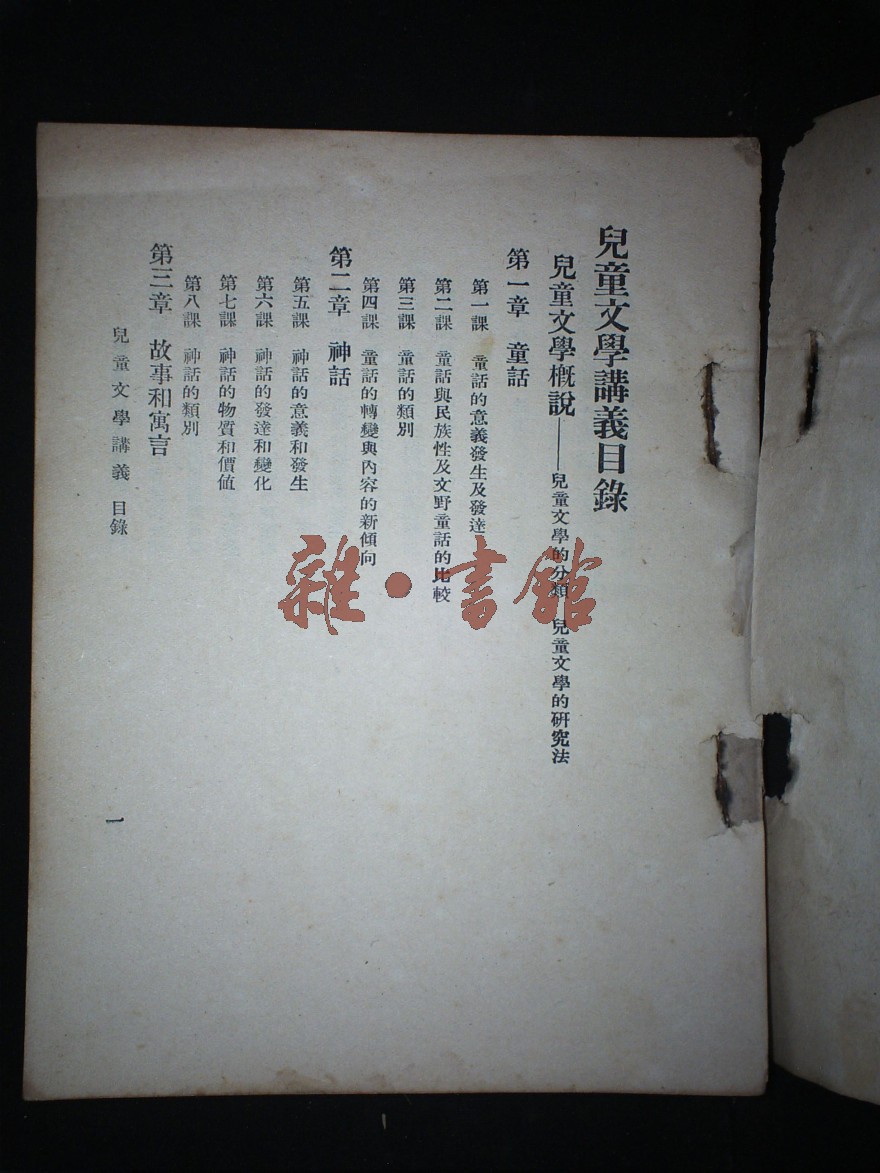 兒童文學講義目錄
兒童文學概說——兒童文學的分類　兒童文學的研究法
第一章　童話
第一課　童話的意義發生及發達
第二課　童話與民族性及文野童話的比較
第三課　童話的類別
第四課　童話的轉變與內容的新傾向
第二章　神話
第五課　神話的意義和發生
第六課　神話的發達和變化
第七課　神話的物質和價值
第八課　神話的類別
第三章　故事和寓言
兒童文學講義　目錄
一
雜·書館